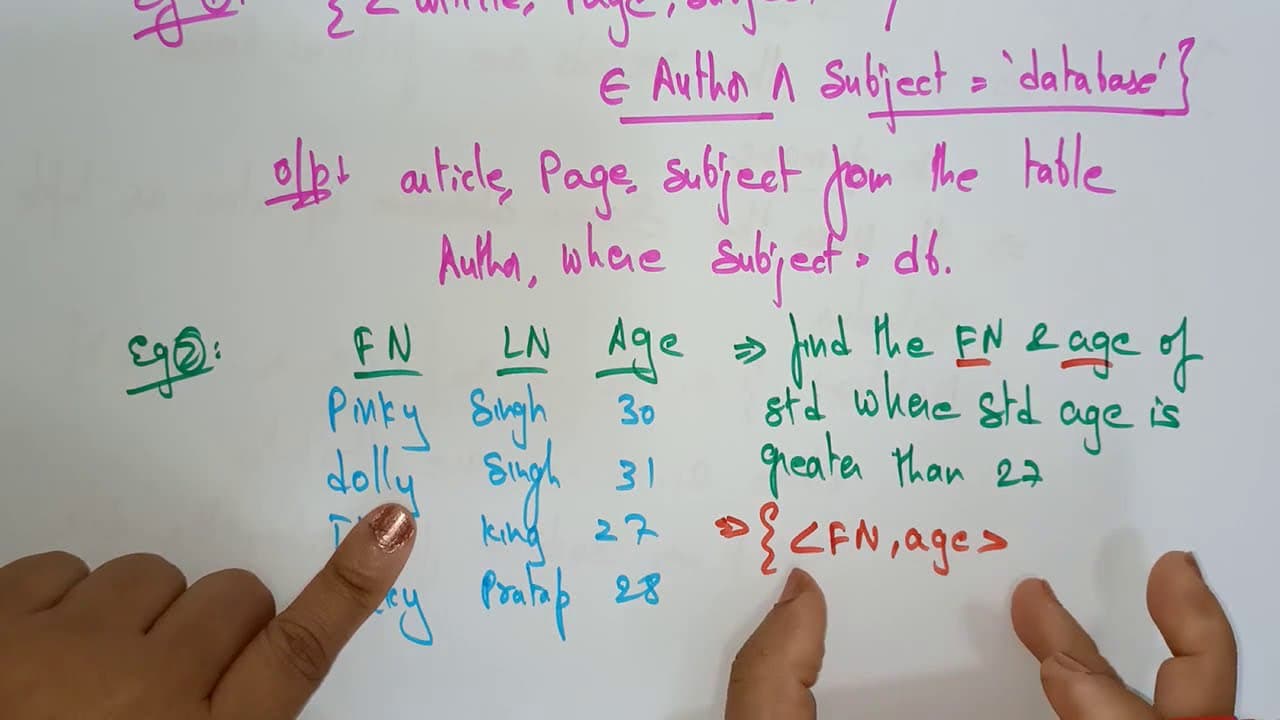 { < article, Page, subject
∈ Author ∧ Subject = 'database' }
o/p: article, Page, subject from the table
Author, where subject = db.
Eg②: FN LN Age ⇒ find the FN & age of
Pinky Singh 30 std where std age is
dolly Singh 31 greater than 27
King 27 ⇒ { <FN, age>
Pratap 28